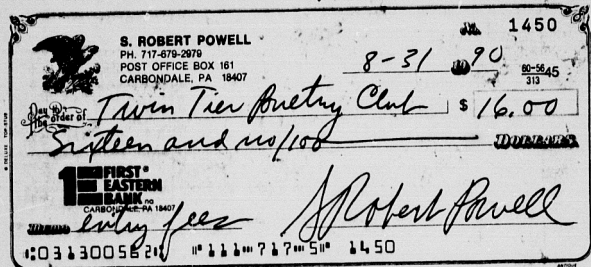 1450
S. ROBERT POWELL
PH. 717-679-2979
POST OFFICE BOX 161
CARBONDALE, PA 18407
8-31 1990
60-5645
313
Pay to the order of Twin Tier Poetry Club $ 16.00
Sixteen and no/100 DOLLARS
1 FIRST EASTERN BANK NA
CARBONDALE, PA 18407
MEMO entry fees S Robert Powell
⑆031300562⑆ ⑈111⑉717⑉5⑈ 1450